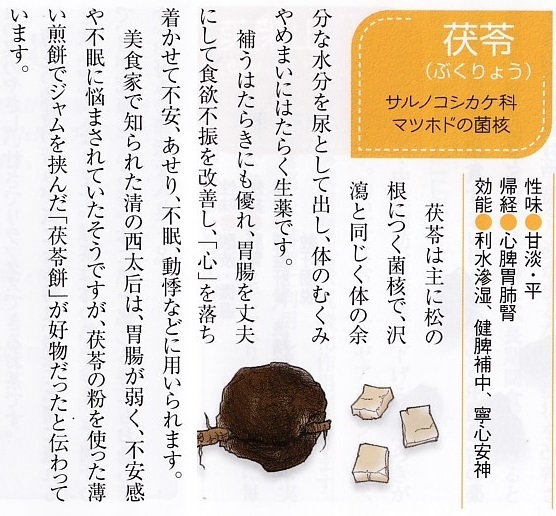 茯苓
（ぶくりょう）
サルノコシカケ科
マツホドの菌核
性味●甘淡・平
帰経●心脾胃肺腎
効能●利水滲湿、健脾補中、寧心安神
茯苓は主に松の
根につく菌核で、沢
瀉と同じく体の余
分な水分を尿として出し、体のむくみ
やめまいにはたらく生薬です。
補うはたらきにも優れ、胃腸を丈夫
にして食欲不振を改善し、「心」を落ち
着かせて不安、あせり、不眠、動悸などに用いられます。
美食家で知られた清の西太后は、胃腸が弱く、不安感
や不眠に悩まされていたそうですが、茯苓の粉を使った薄
い煎餅でジャムを挟んだ「茯苓餅」が好物だったと伝わって
います。